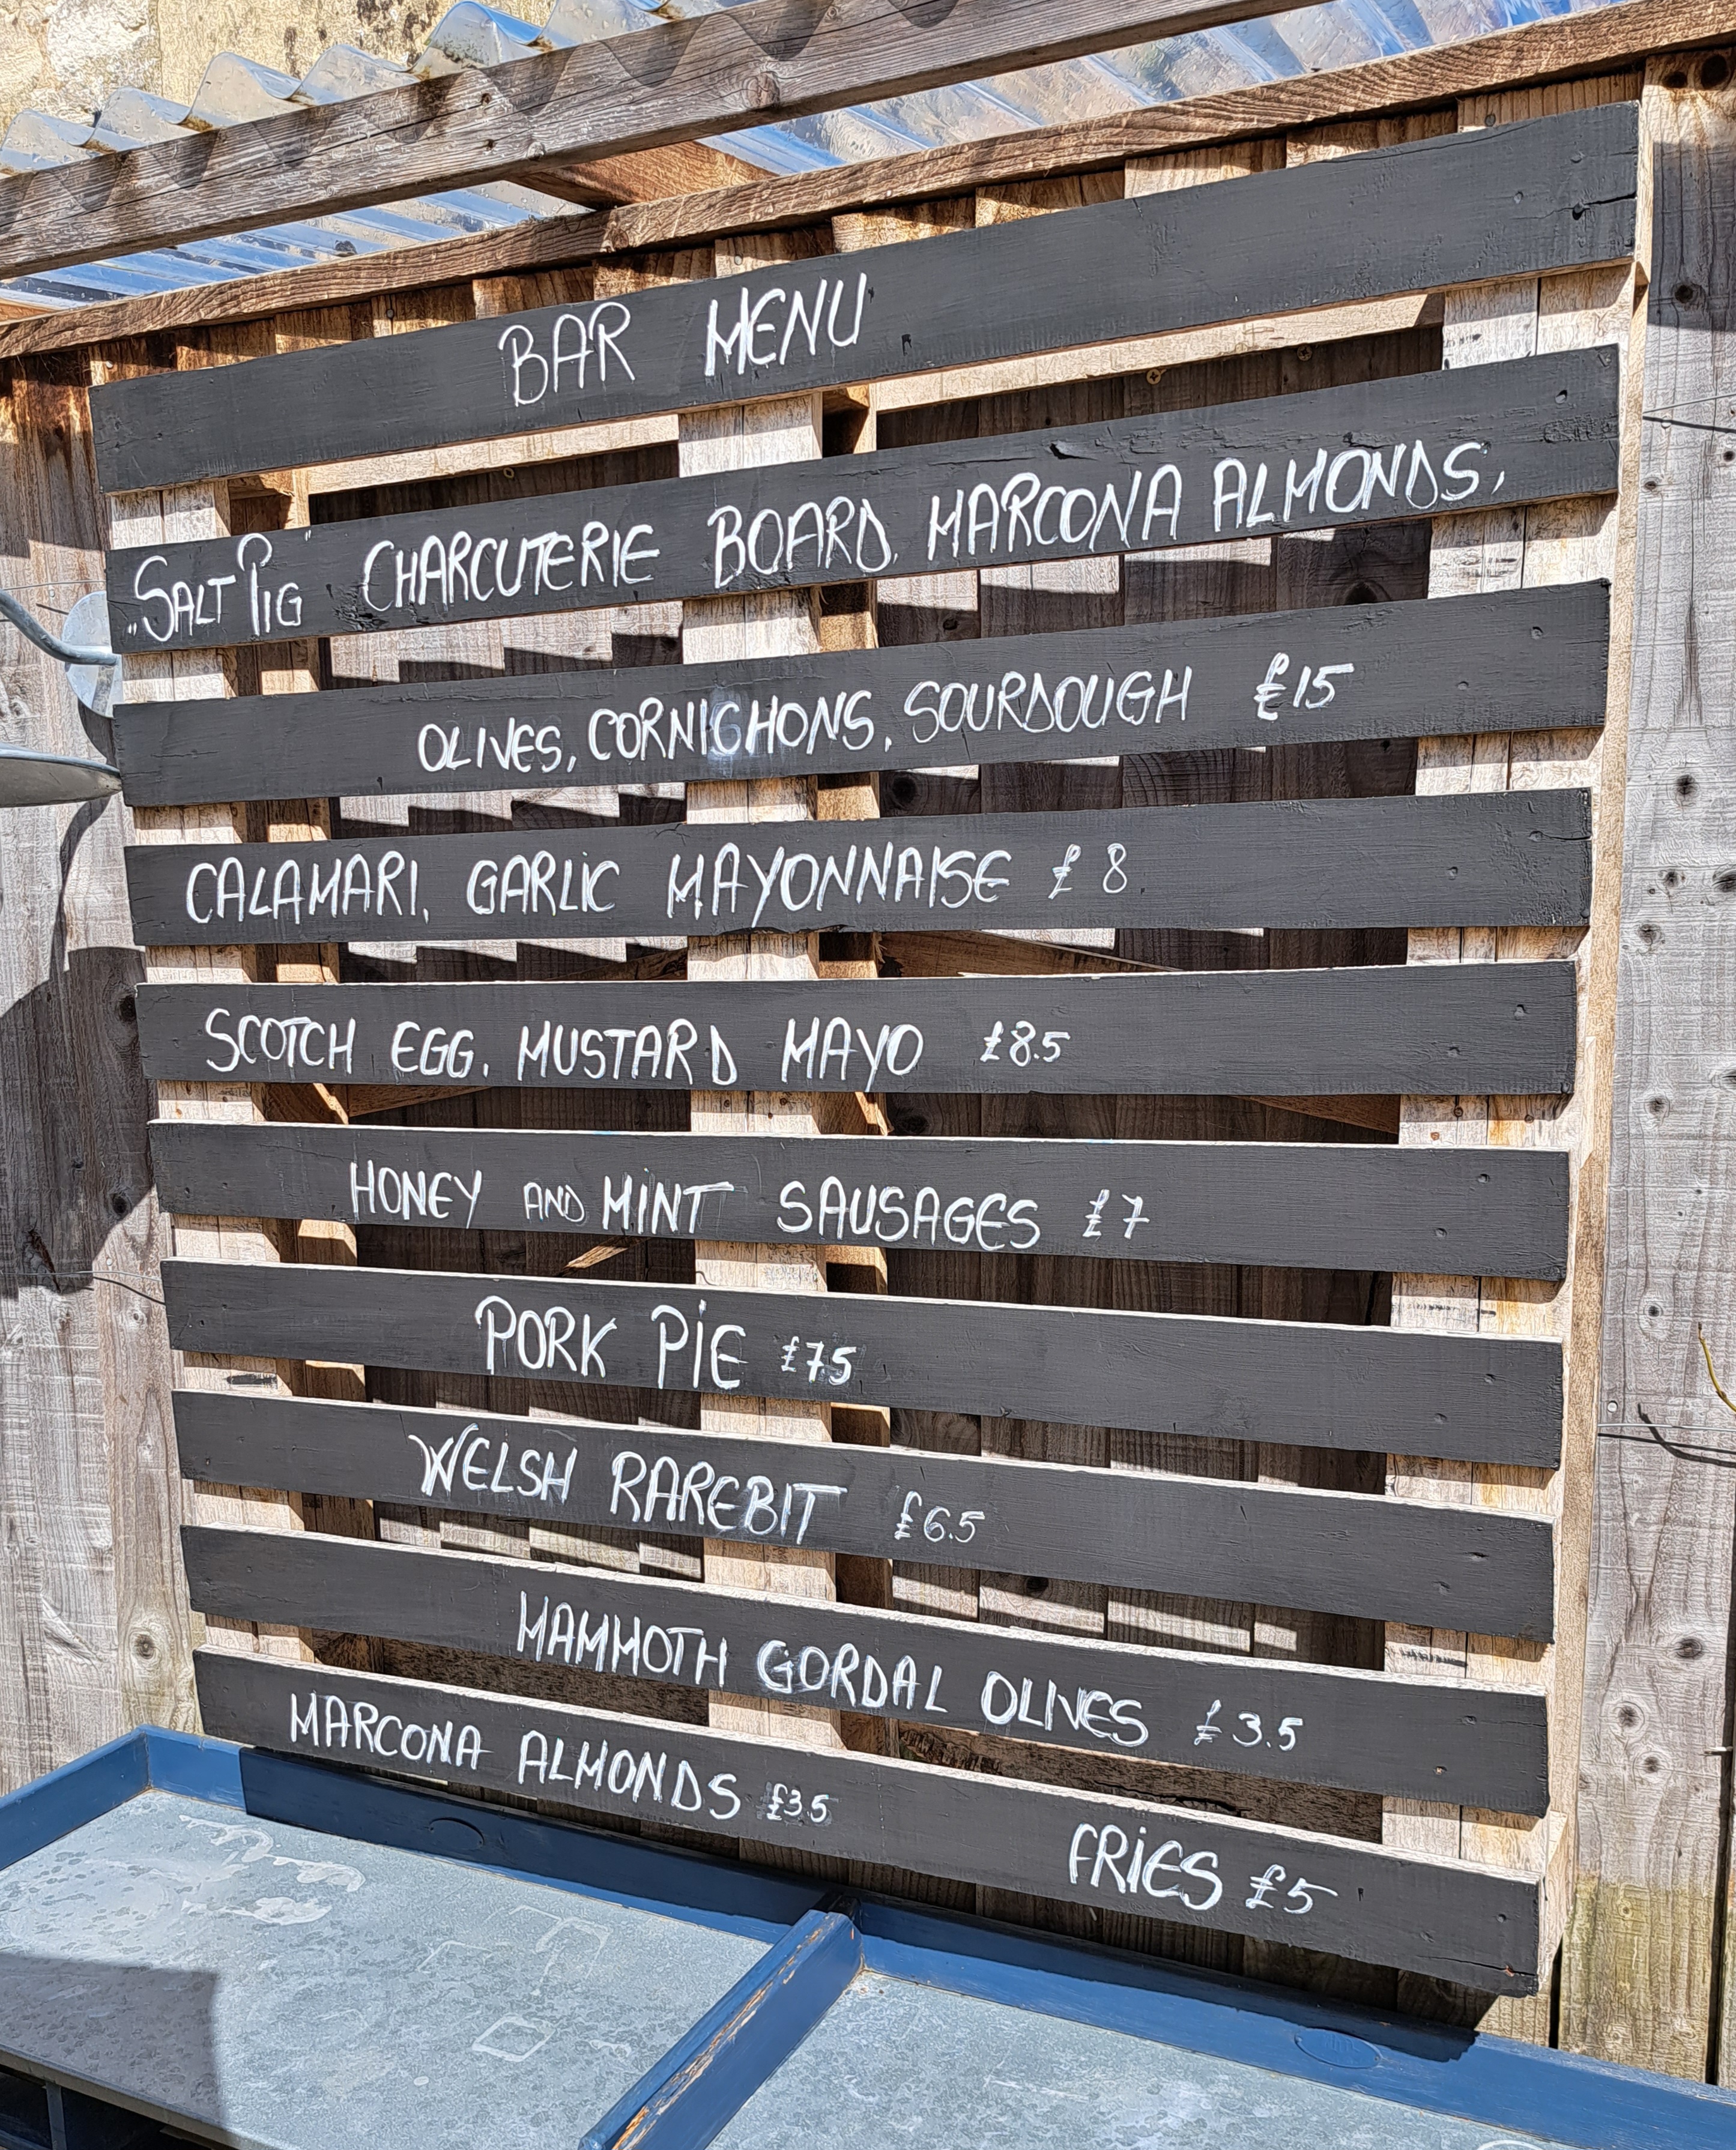 BAR MENU
„SALT PIG" CHARCUTERIE BOARD, MARCONA ALMONDS,
OLIVES, CORNICHONS, SOURDOUGH £15
CALAMARI, GARLIC MAYONNAISE £8
SCOTCH EGG, MUSTARD MAYO £8.5
HONEY AND MINT SAUSAGES £7
PORK PIE £7.5
WELSH RAREBIT £6.5
MAMMOTH GORDAL OLIVES £3.5
MARCONA ALMONDS £3.5
FRIES £5